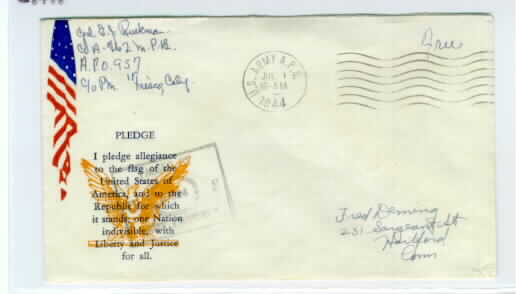 Cpl. G. J. Ruekman
Co A-962 M.P.B.
A.P.O. 957
c/o P.M. 'Frisco, Caly.
U.S. ARMY A.P.O.
JUL 1
AM
1944
Free
PLEDGE
I pledge allegiance
to the flag of the
United States of
America, and to the
Republic for which
it stands; one Nation
indivisible, with
Liberty and Justice
for all.
Fred Deming
231 Sargeant St
Hartford
Conn